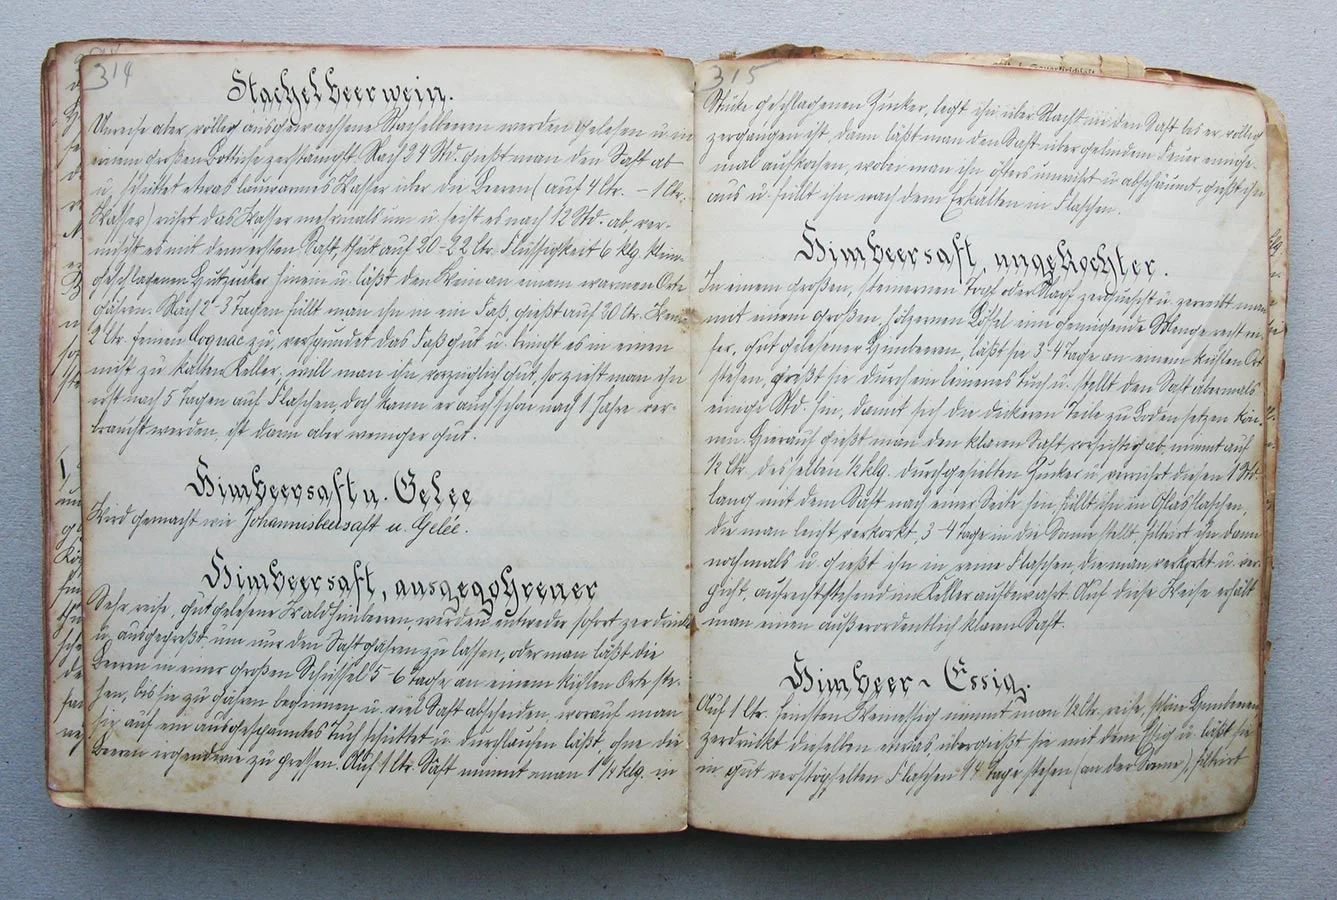 314
Stachelbeerwein.
Unreife aber völlig ausgewachsene Stachelbeeren werden gelesen u in
einem großen Bottiche zerstampft. Nach 24 Std. gießt man den Saft ab
u. schüttet etwas lauwarmes Wasser über die Beeren (auf 4 Ltr. – 1 Ltr.
Wasser) rührt das Wasser mehrmals um u. seiht es nach 12 Std. ab, ver-
mischt es mit dem ersten Saft, thut auf 20-22 Ltr. Flüssigkeit 6 klg. klein-
geschlagenen Hutzucker hinein u. läßt den Wein an einem warmen Orte
gähren. Nach 2-3 Tagen füllt man ihn in ein Faß, gießt auf 20 Ltr. Wein
2 Ltr. feinen Cognac zu, verspundet das Faß gut u. bringt es in einen
nicht zu kalten Keller. will man ihn vorzüglich gut, so zieht man ihn
erst nach 5 auf Flaschen, doch kann er auch schon nach 1 Jahre ver-
braucht werden, ist dann aber weniger gut.
Himbeersaft u. Gelee
Wird gemacht wie Johannisbeersaft u. Gelée.
Himbeersaft, ausgegohrener
Sehr reife, gut gelesene Waldhimbeeren, werden entweder sofort zerdrückt
u. ausgepreßt um nur den Saft gähren zu lassen, oder man läßt die
Beeren in einer großen Schüssel 5-6 Tage an einem kühlen Orte ste-
hen, bis sie zu gähren beginnen u. viel Saft abscheiden, worauf man
sie auf ein ausgespanntes Tuch schüttet u. durchlaufen läßt, ohne die
Beeren irgendwie zu pressen. Auf 1 Ltr. Saft nimmt man 1½ klg. in
315
Stücke geschlagenen Zucker, legt ihn über Nacht in den Saft bis er völlig
zergangen ist, dann läßt man den Saft über gelindem Feuer einige-
mal aufkochen, wobei man ihn öfters umrührt u abschäumt, gießt ihn
aus u. füllt ihn nach dem Erkalten in Flaschen.
Himbeersaft, ungekochter.
In einem großen, steinernen Topf oder Napf zerquetscht u. zerreibt man
mit einem großen hölzernen Löffel eine genügende Menge recht rei-
fer, gut gelesener Himbeeren, läßt sie 3-4 Tage an einem kühlen Ort
stehen, preßt sie durch ein leinenes Tuch u. stellt den Saft abermals
einige Std. hin, damit sich die dickeren Teile zu Boden setzen kön-
nen. Hierauf gießt man den klaren Saft vorsichtig ab, nimmt auf
½ Ltr. desselben ½ klg. durchgesiebten Zucker u. verrührt diesen 1 Std.
lang mit dem Saft nach einer Seite hin, füllt ihn in Glasflaschen,
die man leicht verkorkt, 3-4 Tage in die Sonne stellt, filtrirt ihn dann
nochmals u. gießt ihn in reine Flaschen, die man, verkorkt u. ver-
picht, aufrechtstehend im Keller aufbewahrt. Auf diese Weise erhält
man einen außerordentlich klaren Saft.
Himbeer-Essig.
Auf 1 Ltr. feinsten Weinessig nimmt man ½ Ltr. reife, schöne Himbeeren
zerdrückt dieselben etwas übergießt sie mit dem Essig u. läßt sie
in gut verstöpselten Flaschen 14 Tage stehen (an der Sonne), filtrirt